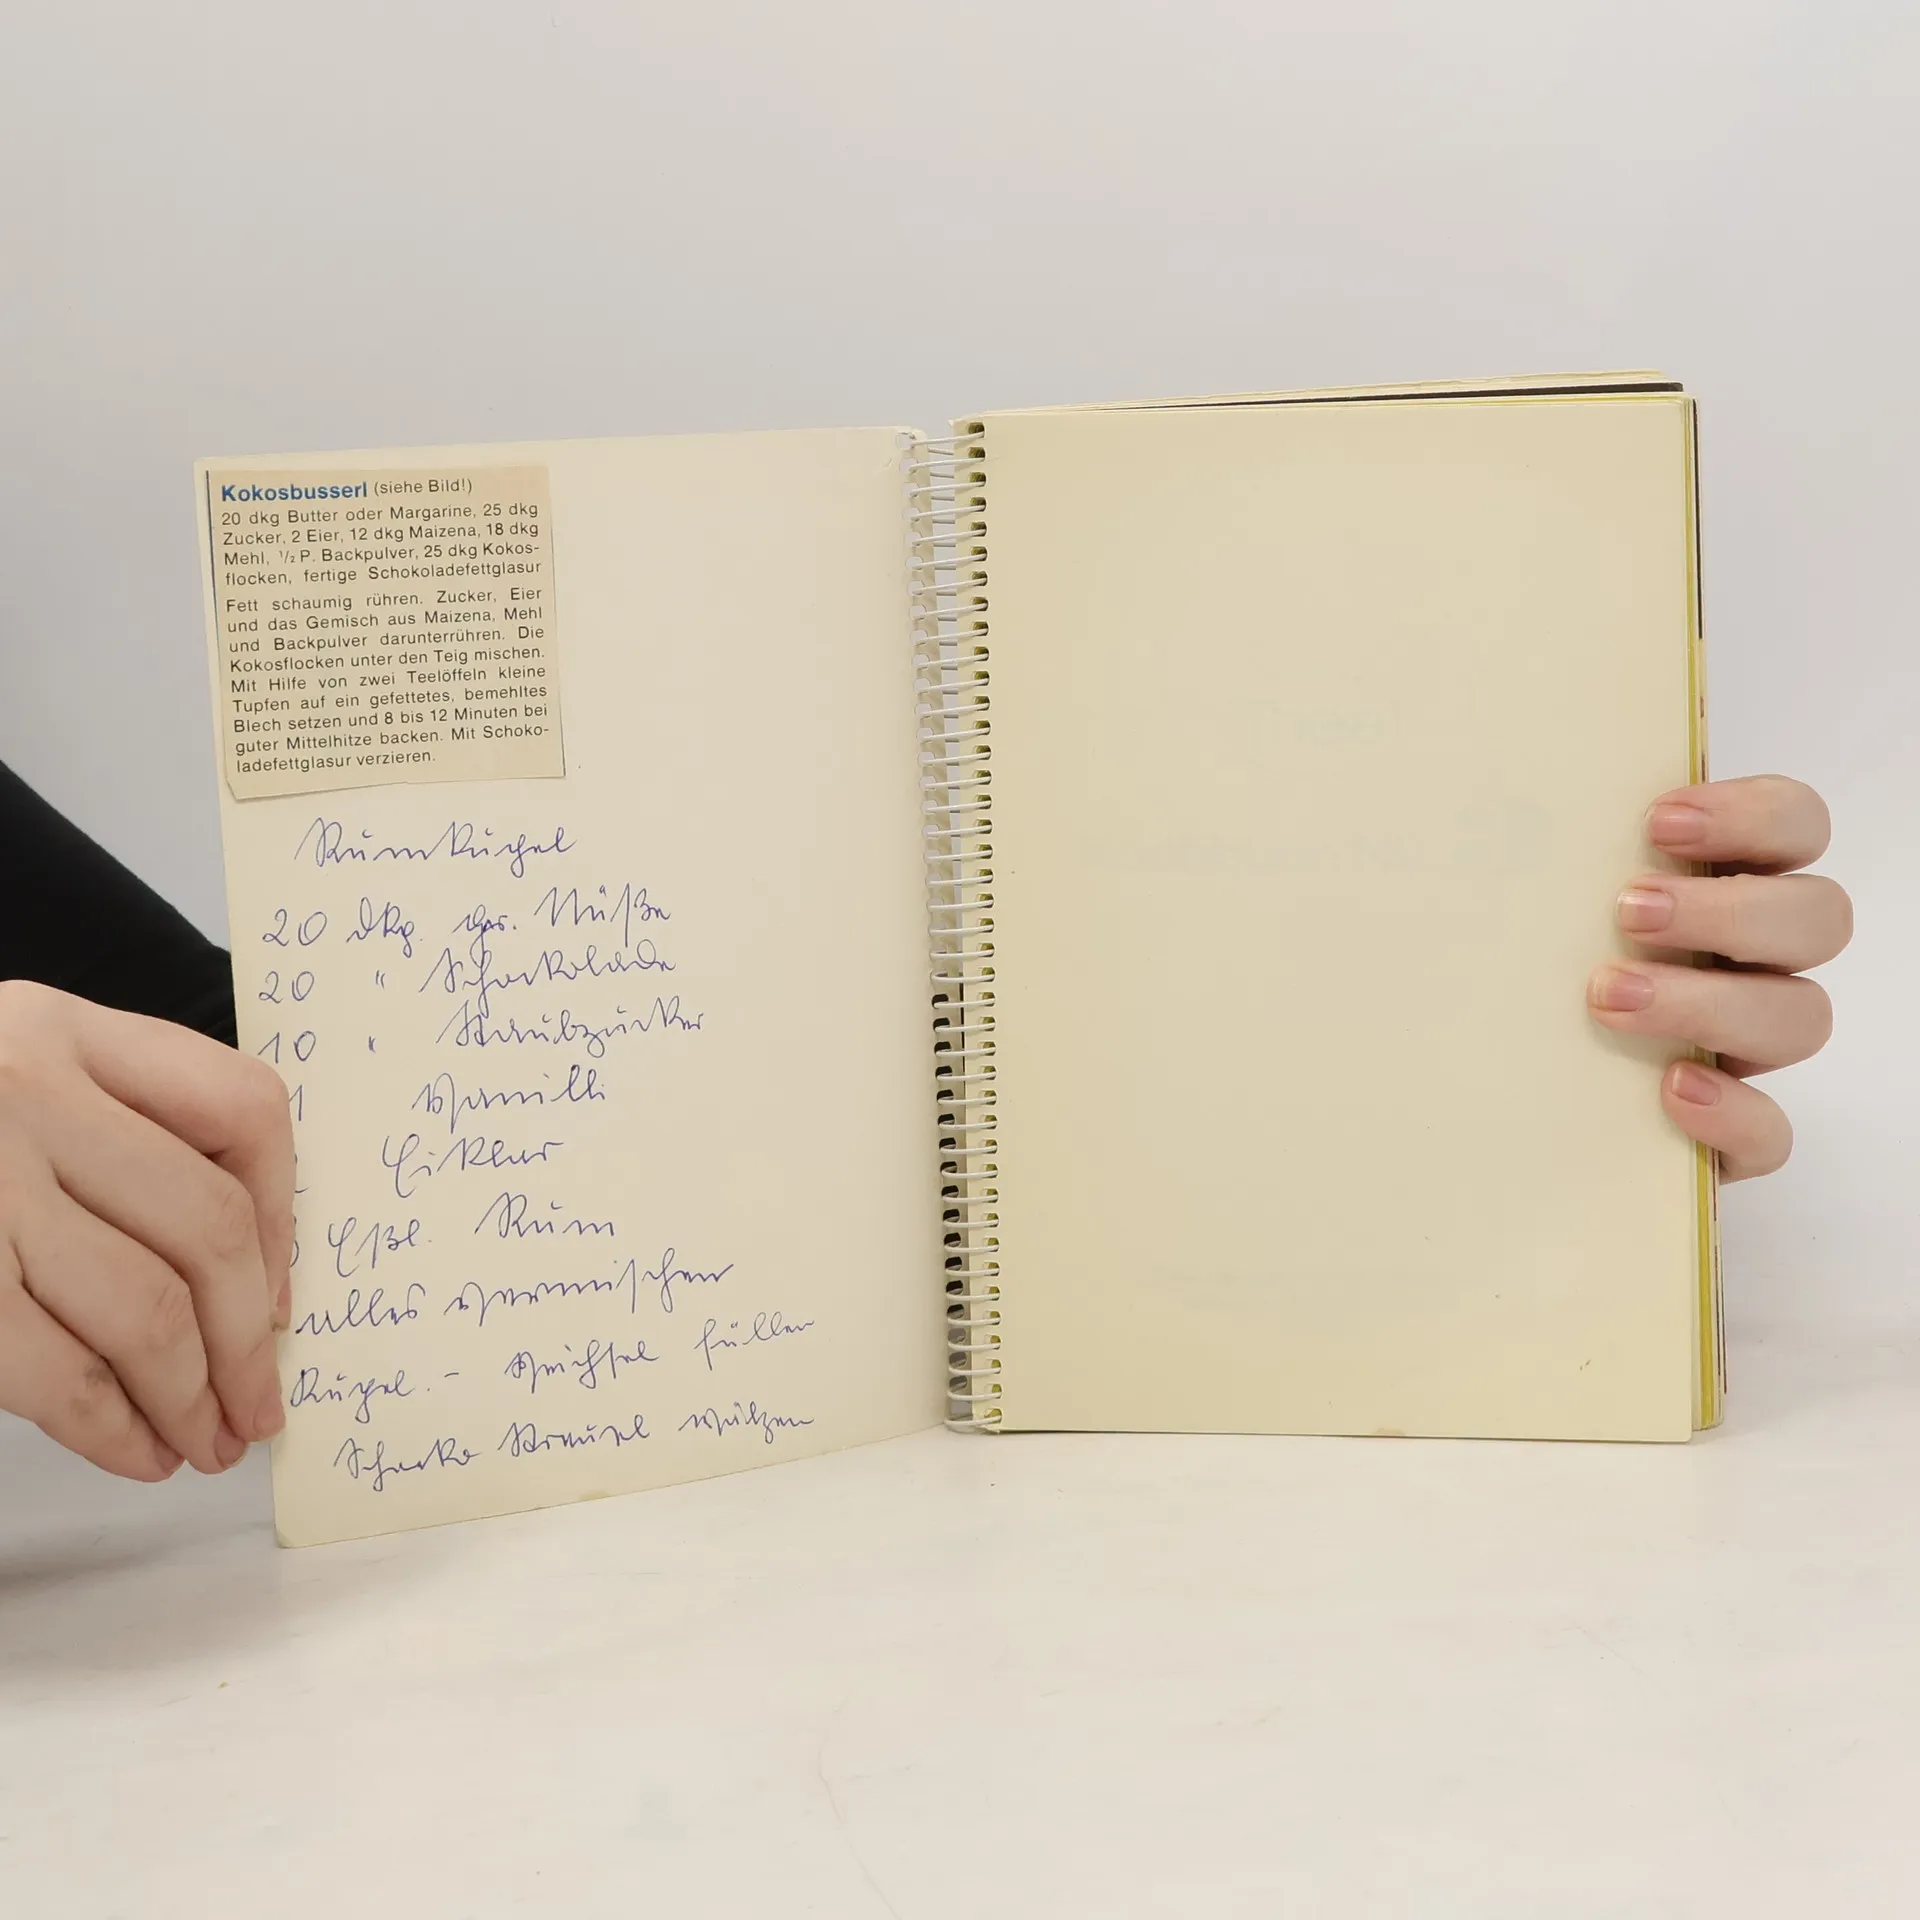 Kokosbusserl (siehe Bild!)
20 dkg Butter oder Margarine, 25 dkg
Zucker, 2 Eier, 12 dkg Maizena, 18 dkg
Mehl, ½ P. Backpulver, 25 dkg Kokos-
flocken, fertige Schokoladefettglasur
Fett schaumig rühren. Zucker, Eier
und das Gemisch aus Maizena, Mehl
und Backpulver darunterrühren. Die
Kokosflocken unter den Teig mischen.
Mit Hilfe von zwei Teelöffeln kleine
Tupfen auf ein gefettetes, bemehltes
Blech setzen und 8 bis 12 Minuten bei
guter Mittelhitze backen. Mit Schoko-
ladefettglasur verzieren.
Rumkugel
20 dkg. ger. Nüße
20 " Schokolade
10 " Staubzucker
1 Vanilli
Eiklar
Eßl. Rum
alles vermischen
Kugel. - Weichsel füllen
Schoko Streusel wälzen